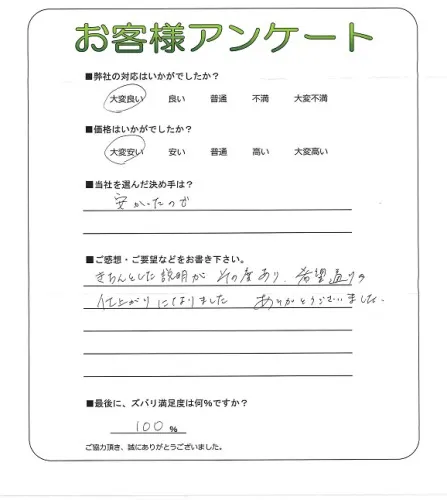 お客様アンケート
■弊社の対応はいかがでしたか?
大変良い 良い 普通 不満 大変不満
■価格はいかがでしたか?
大変安い 安い 普通 高い 大変高い
■当社を選んだ決め手は?
安かったのが
■ご感想・ご要望などをお書き下さい。
きちんとした説明がその度あり、希望通りの
仕上がりになりました ありがとうございました。
■最後に、ズバリ満足度は何%ですか?
100 %
ご協力頂き、誠にありがとうございました。